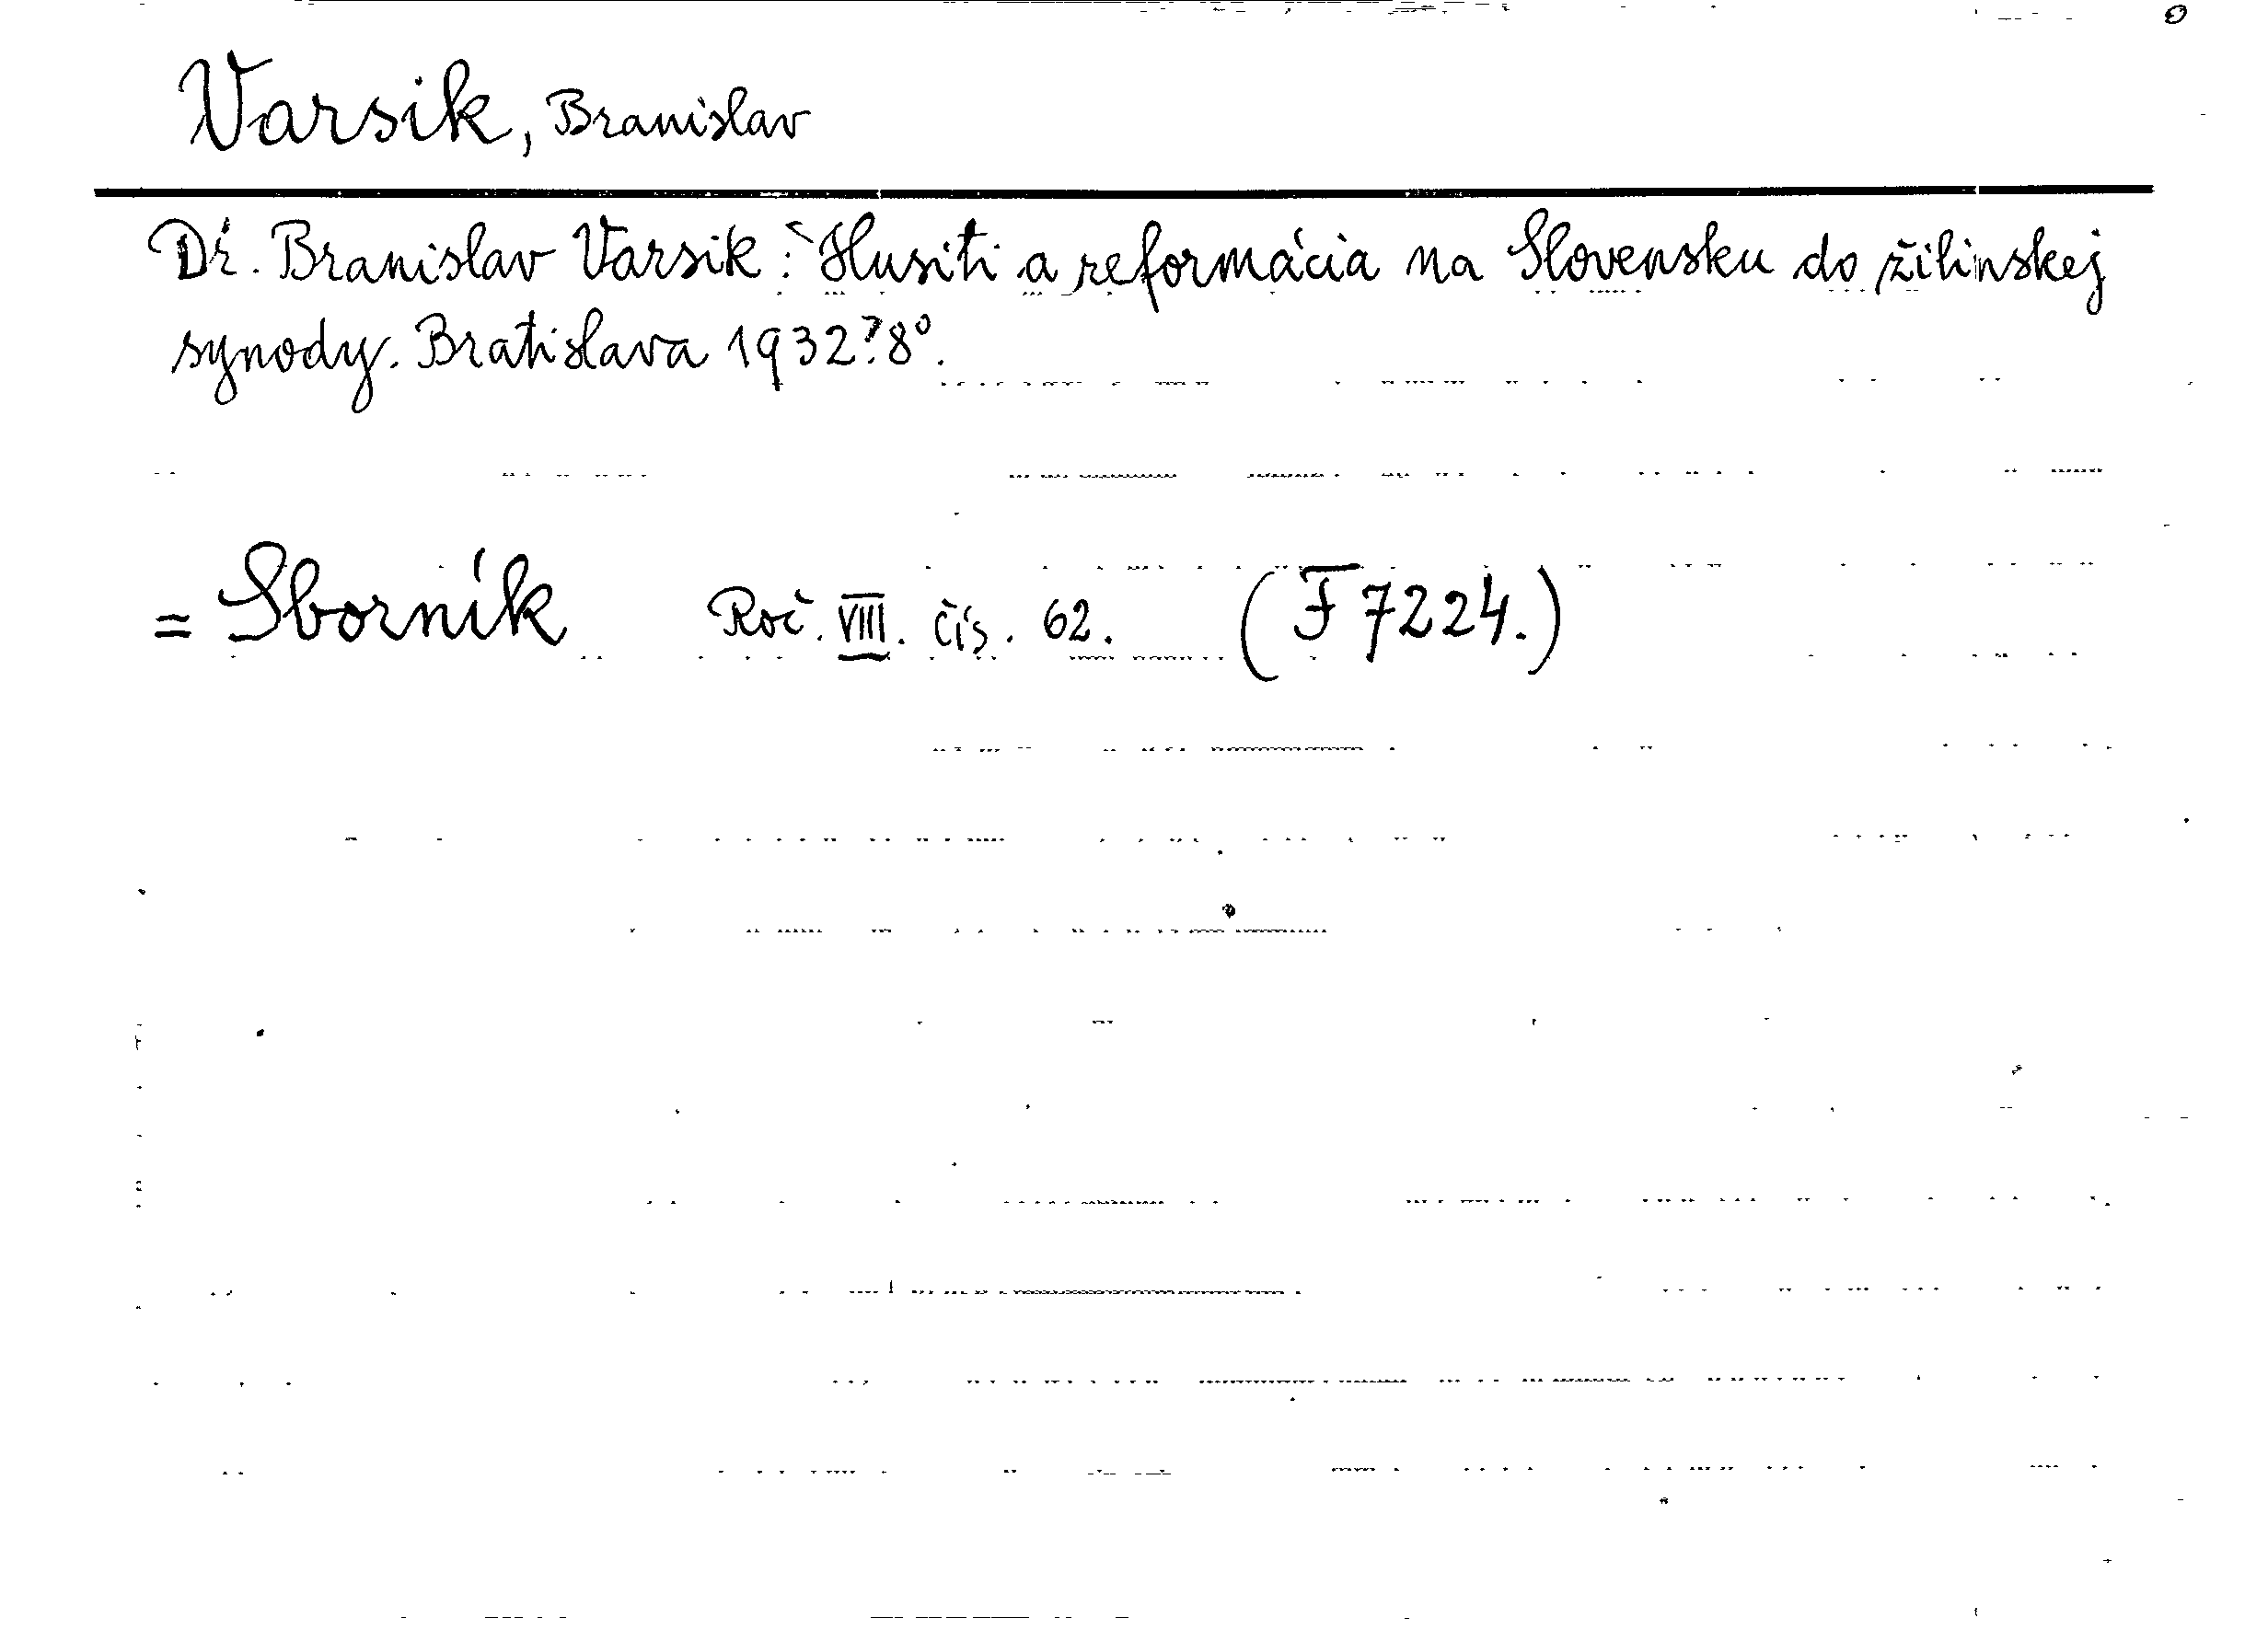 Varsik, Branislav
Dr. Branislav Varsik: Husiti a reformácia na Slovensku do žilinskej
synody. Bratislava 1932? 8°.
= Sborník Roč. VIII. čís. 62. (F 7224.)